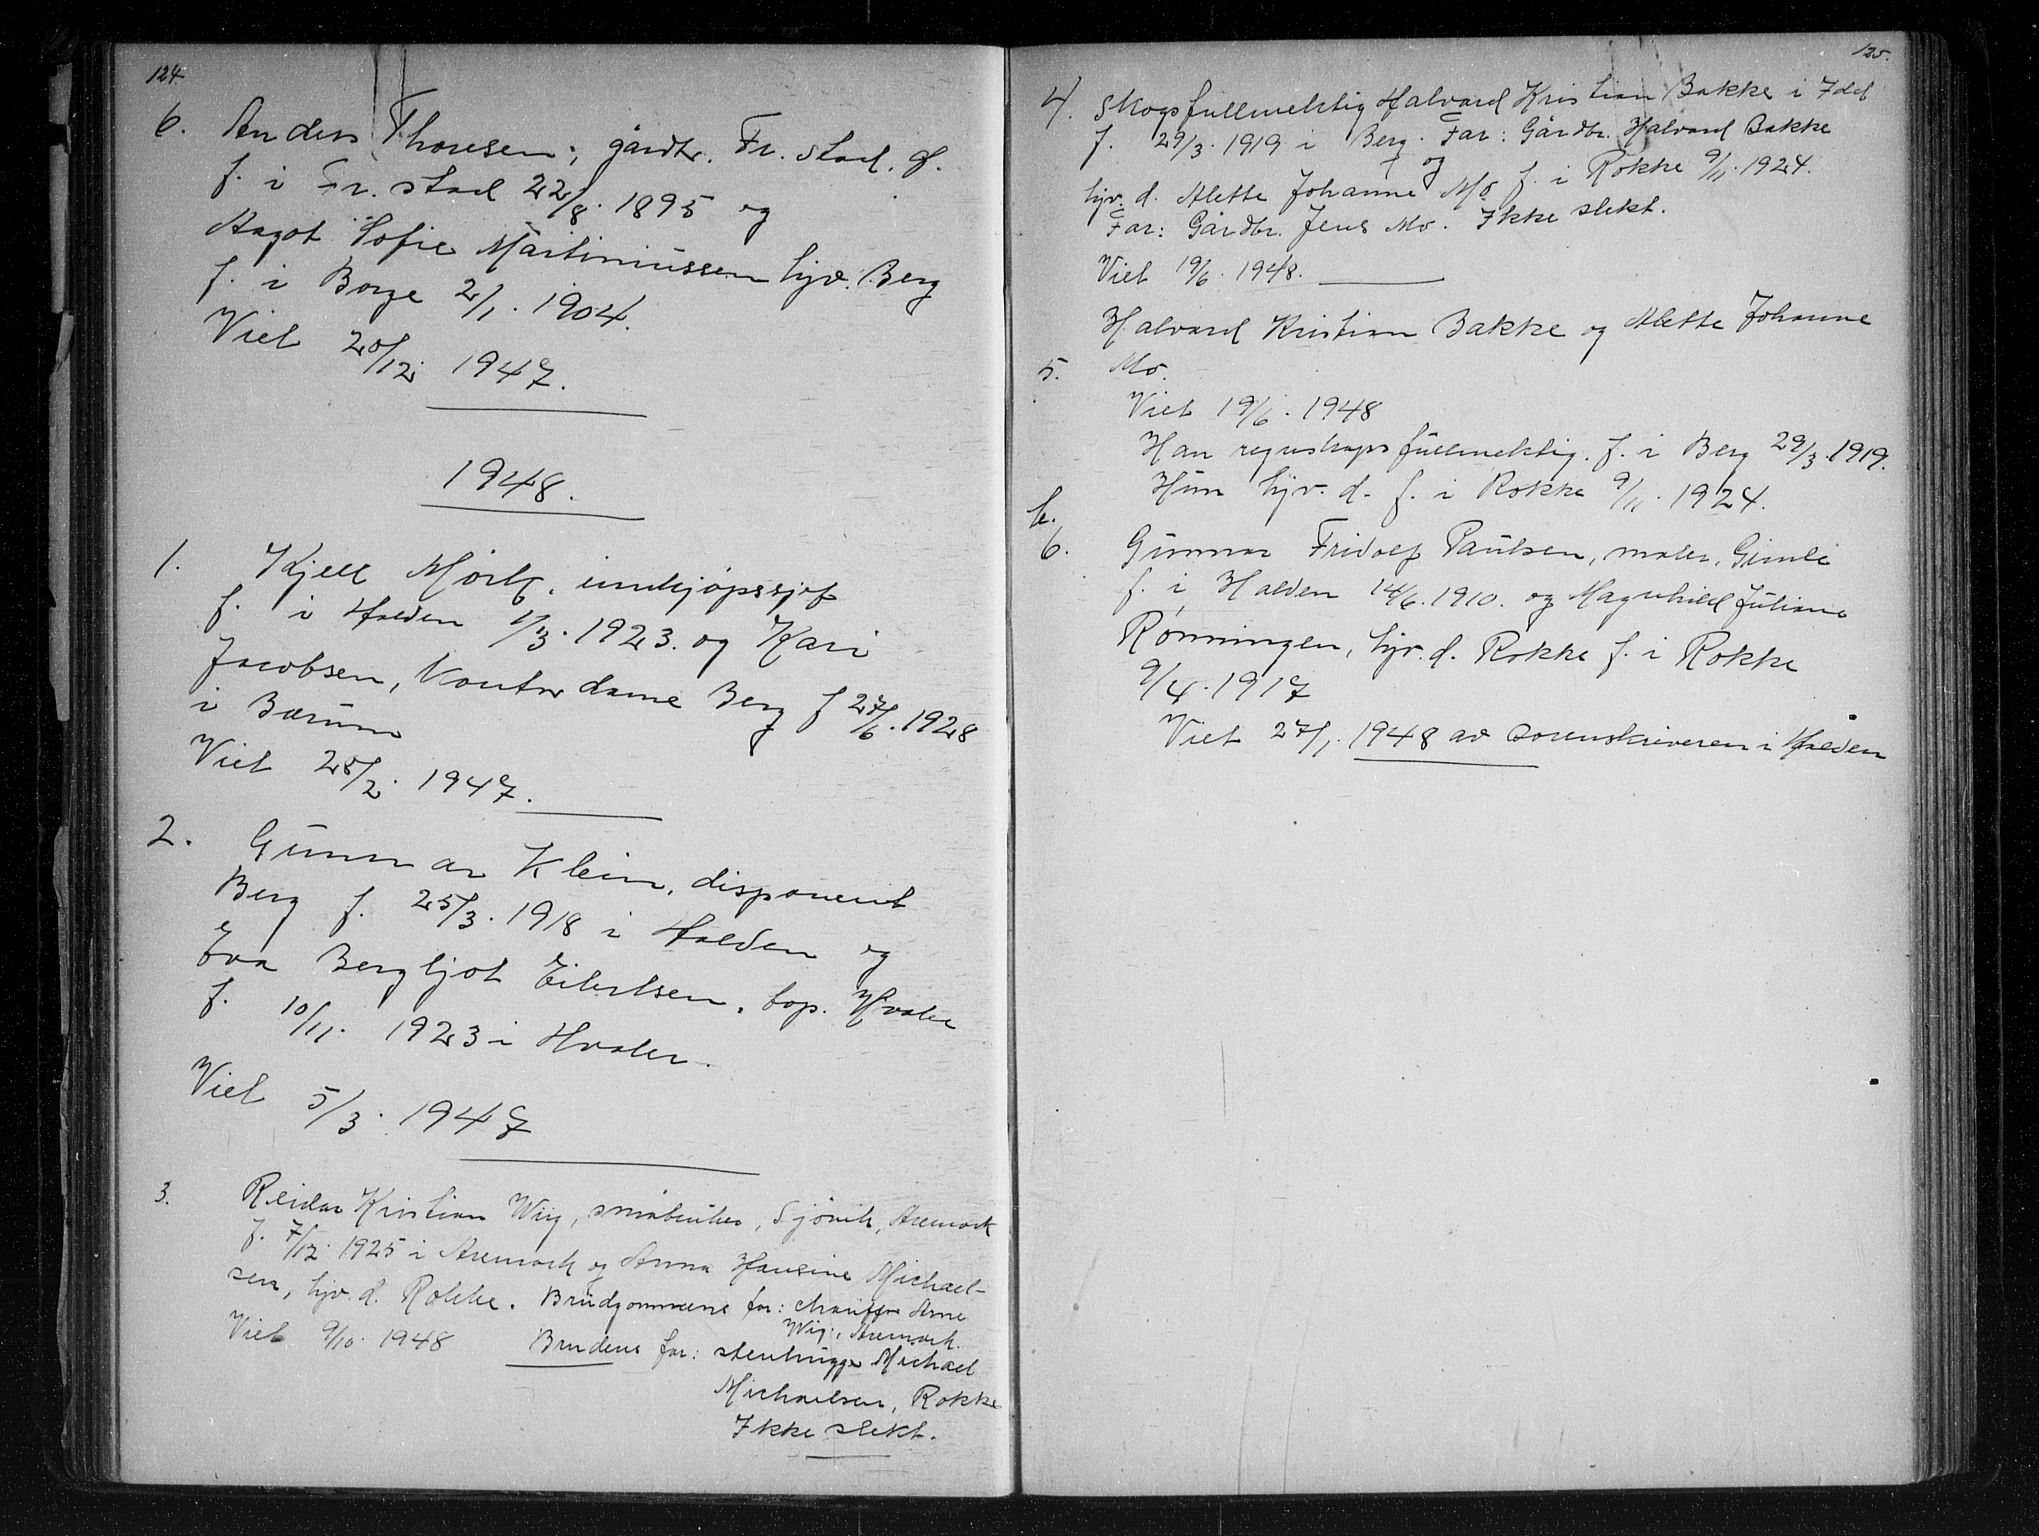 124.
6. Anders Thoresen, gårdbr. Fr. stad. g.
f. i Fr. stad 22/8. 1895 og
Aagot Sofie Martinussen hjv. Berg
f. i Borge 2/1. 1904.
Viet 20/12. 1947.
1948.
1. Kjell Mørk, innkjøpssjef
f. i Halden 1/3. 1923. og Kari
Jacobsen, Kontordame Berg f 27/6. 1928
i Bærum
Viet 28/2. 1947.
2. Gunnar Klein, disponent
Berg f. 25/3. 1918 i Halden og
Eva Bergljot Eilertsen, bop. Hvaler
f. 10/11. 1923 i Hvaler.
Viet 5/3. 1947
3. Reidar Kristian Wiig, småbruker, Sjøvik, Aremark
f. 7/12. 1925 i Aremark og Anna Hansine Michael-
sen, hjv. d. Rokke. Brudgommens far: chauffør Arne
Wiig, Aremark.
Viet 9/10. 1948 Brudens far: stenhugger Michael
Michaelsen, Rokke
Ikke slekt.
125.
4. Skogsfullmektig Halvard Kristian Bakke i Idd
f. 29/3. 1919 i Berg. Far: Gårdbr. Halvard Bakke
og
hjv. d. Alette Johanne Mo f. i Rokke 9/11. 1924.
Far: Gårdbr. Jens Mo. Ikke slekt.
Viet 19/6. 1948.
Halvard Kristian Bakke og Alette Johanne
5. Mo.
Viet 19/6. 1948
Han regnskapsfullmektig. f. i Berg 29/3. 1919.
Hun hjv. d. f. i Rokke 9/11. 1924.
b.
6. Gunnar Fridolf Paulsen, maler, Gimle
f. i Halden 14/6. 1910. og Magnhild Juliane
Rønningen, hjv. d. Rokke f. i Rokke
9/4. 1917
Viet 27/1. 1948 av sorenskriveren i Halden